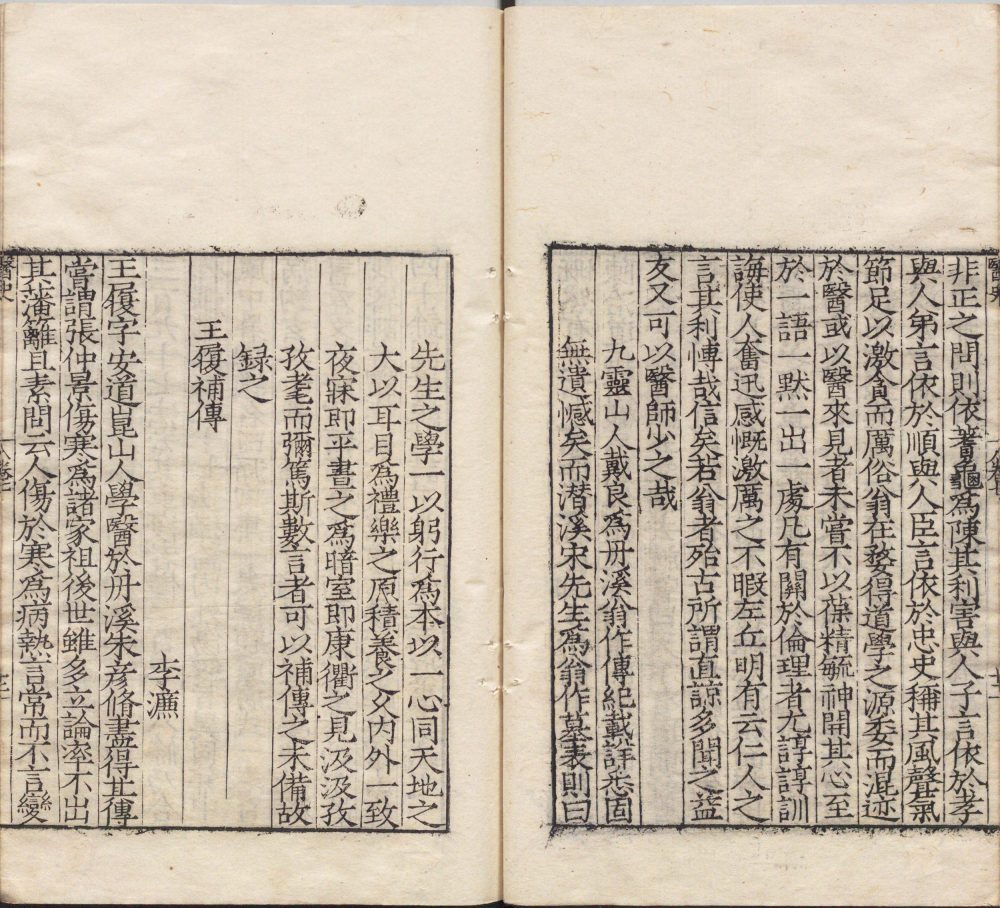 非正之問則依蓍龜爲陳其利害與人子言依於孝
與人弟言依於順與人臣言依於忠史稱其風聲氣
節足以激貪而厲俗翁在婺得道學之源委而混迹
於醫或以醫來見者未嘗不以葆精毓神開其心至
於一語一默一出一處凡有關於倫理者尤諄諄訓
誨使人奮迅感慨激厲之不暇左丘明有云仁人之
言其利愽哉信矣若翁者殆古所謂直諒多聞之益
友又可以醫師少之哉
九靈山人戴良爲丹溪翁作傳紀載詳悉固
無遺憾矣而潜溪宋先生爲翁作墓表則曰
先生之學一以躬行爲本以一心同天地之
大以耳目爲禮樂之原積養之久内外一致
夜寐即平晝之爲暗室即康衢之見汲汲孜
孜耄而彌篤斯數言者可以補傳之未備故
録之
王履補傳
李濂
王履字安道崑山人學醫於丹溪朱彦脩盡得其傳
嘗謂張仲景傷寒爲諸家祖後世雖多立論率不出
其藩籬且素問云人傷於寒爲病熱言常而不言變